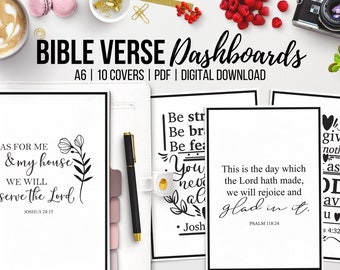 BIBLE VERSE Dashboards
A6 | 10 COVERS | PDF | DIGITAL DOWNLOAD
AS FOR ME
& my house
WE WILL
serve the Lord
JOSHUA 24:15
Be st
Be bra
Be fea
You
neve
al
- Josh
This is the day which
the Lord hath made,
we will rejoice and
glad in it.
PSALM 118:24
giv
nothi
as
s 4:32